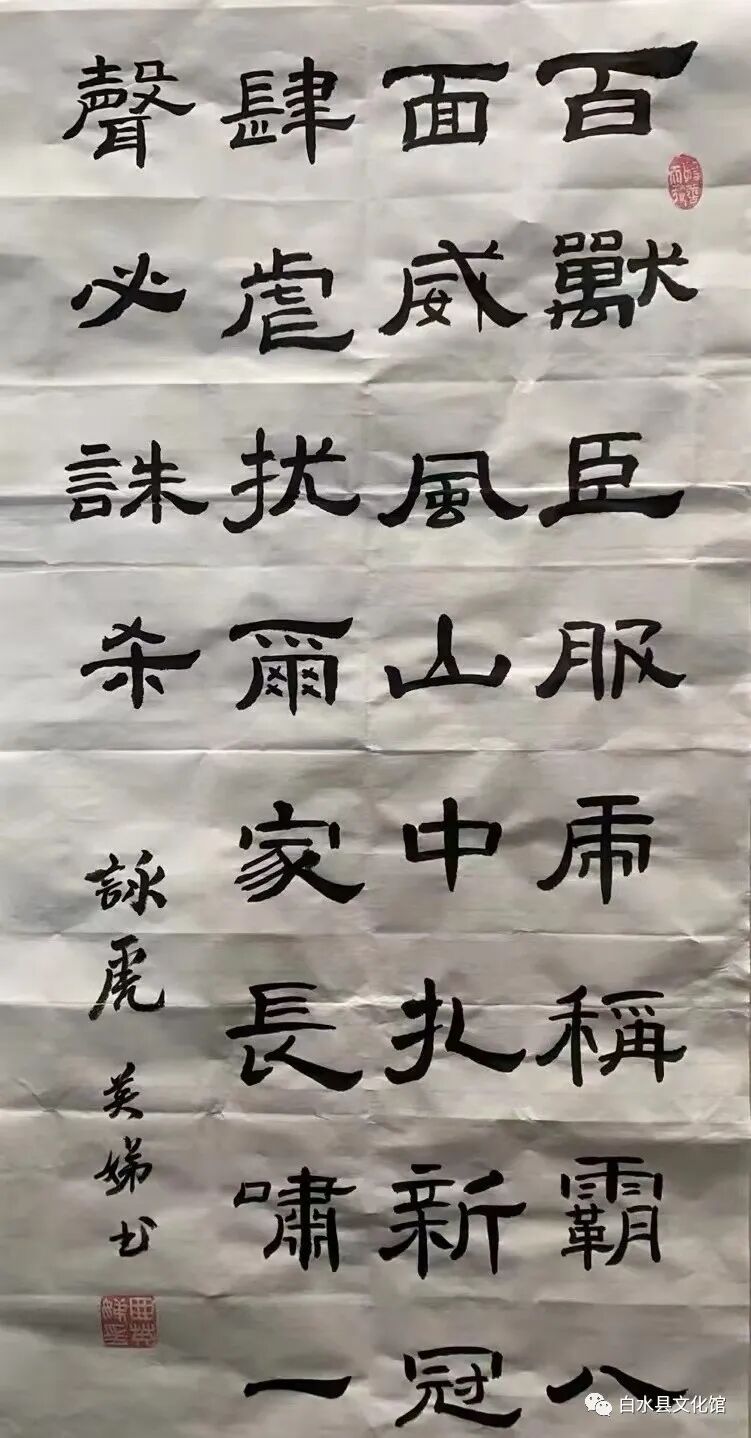 百獸臣服虎稱霸八
面威風山中扎新冠
肆虐扰爾家長嘯一
聲必誅杀
詠虎 英娣书
白水县文化馆